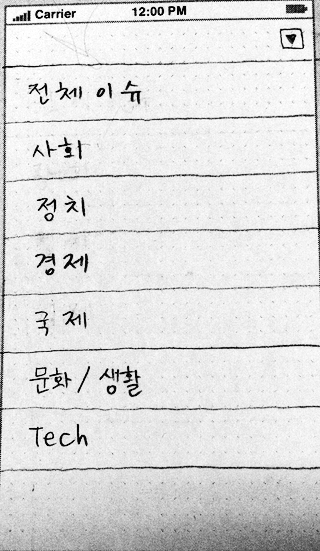 Carrier 12:00 PM
전체 이슈
사회
정치
경제
국제
문화 / 생활
Tech